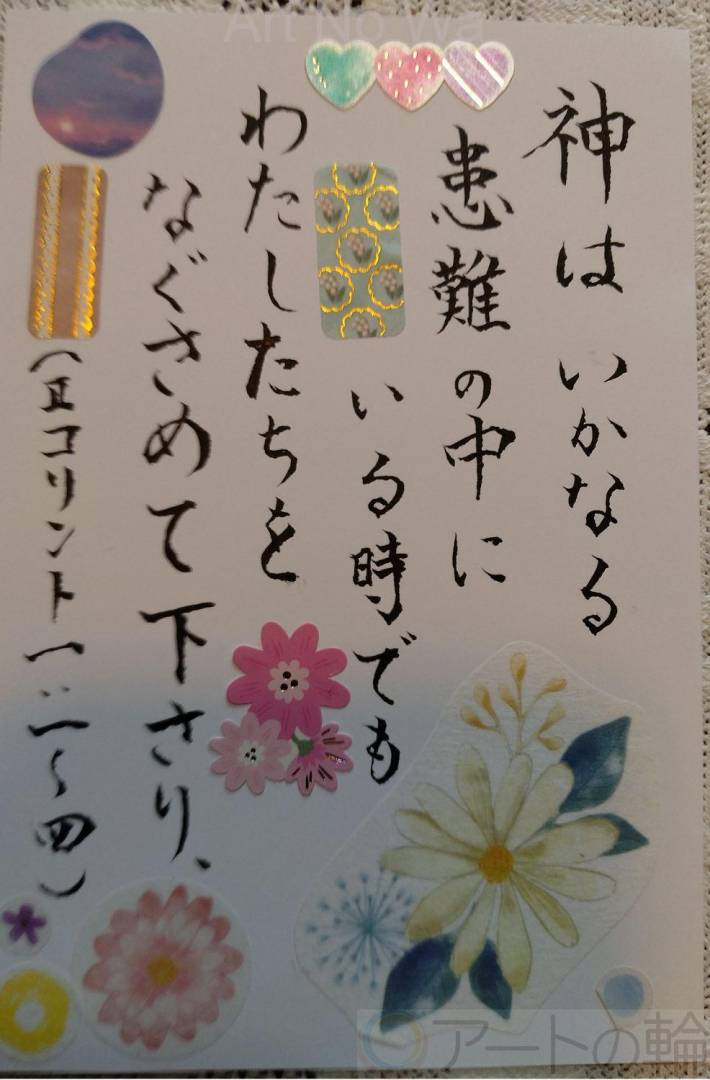 神は いかなる
患難の中に
いる時でも
わたしたちを
なぐさめて下さり、
(Ⅱコリント一:三〜四)
Art No Wa
アートの輪